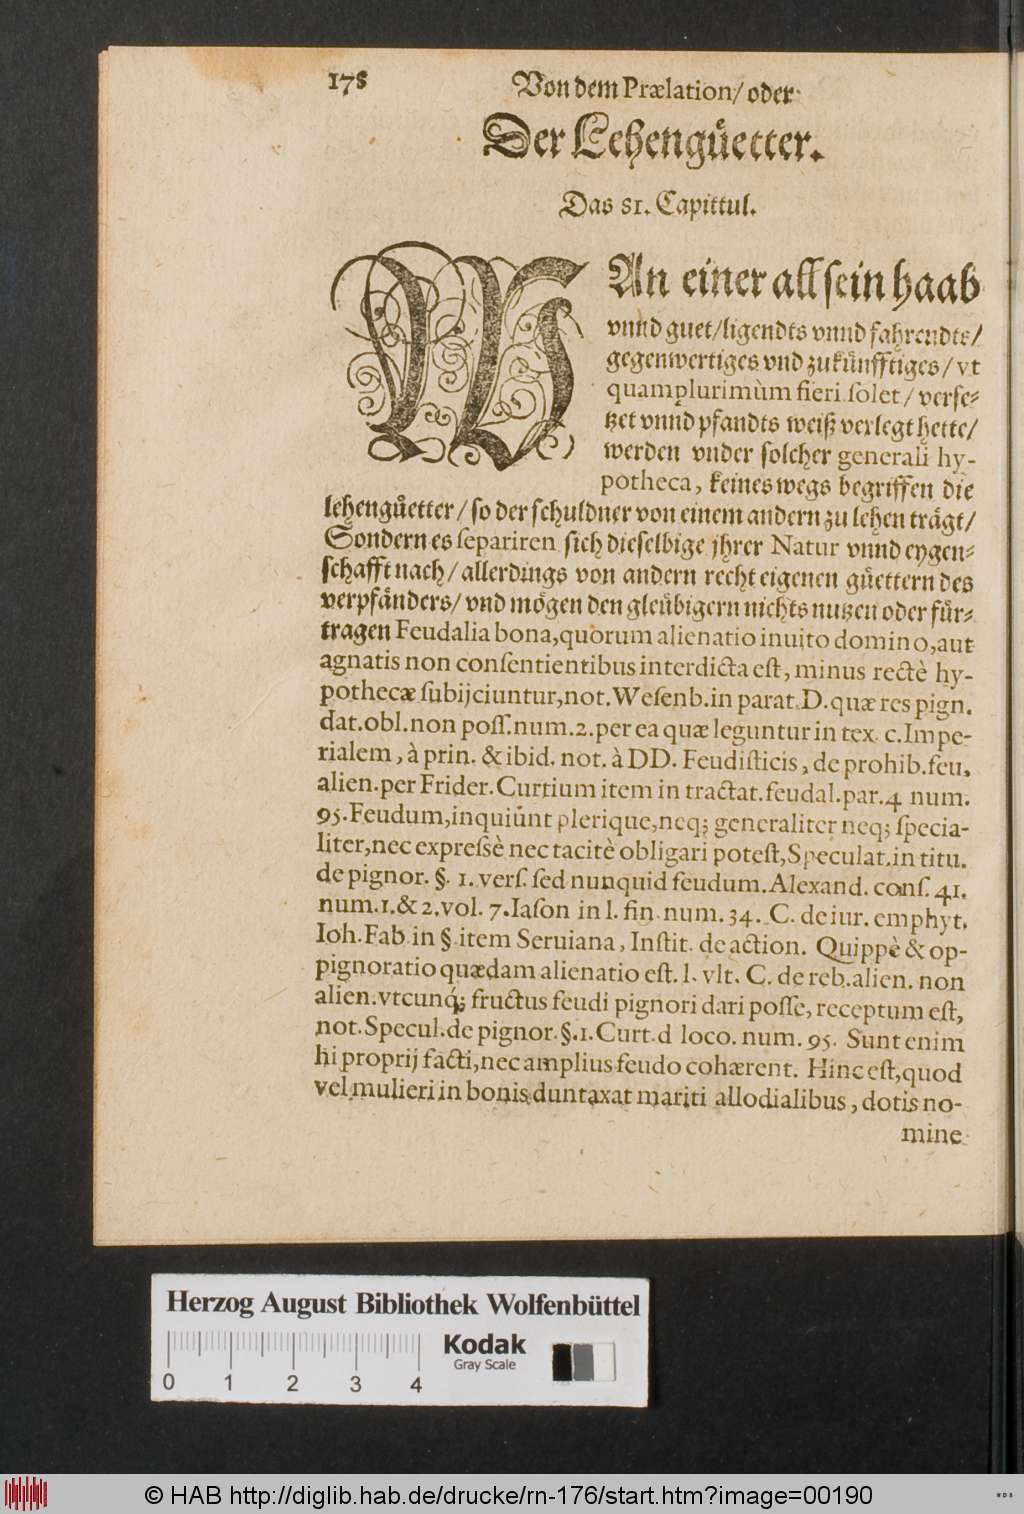 178
Von dem Prælation/ oder
Der Lehengůetter.
Das 81. Capittul.
WAn einer all sein haab
vnnd guet/ligendts vnnd fahrendts/
gegenwertiges vnd zukůnfftiges/ vt
quamplurimùm fieri solet/ verse-
tzet vnnd pfandts weiß verlegt hette/
werden vnder solcher generali hy-
potheca, keines wegs begriffen die
lehengůetter/ so der schuldner von einem andern zu lehen trägt/
Sondern es separiren sich dieselbige jhrer Natur vnnd eygen-
schafft nach/ allerdings von andern recht eigenen gůettern des
verpfänders/ vnd mögen den gleübigern nichts nutzen oder für-
tragen Feudalia bona, quorum alienatio inuito domino, aut
agnatis non consentientibus interdicta est, minus rectè hy-
pothecæ subijciuntur, not. Wesenb. in parat. D. quæ res pign.
dat. obl. non poss. num. 2. per ea quæ leguntur in tex. c. Impe-
rialem, à prin. & ibid. not. à DD. Feudisticis, de prohib. feu.
alien. per Frider. Curtium item in tractat. feudal. par. 4 num.
95. Feudum, inquiunt plerique, neq; generaliter neq; specia-
liter, nec expressè nec tacitè obligari potest, Speculat. in titu.
de pignor. §. 1. vers. sed nunquid feudum. Alexand. cons. 41.
num. 1. & 2. vol. 7. Iason in l. fin. num. 34. C. de iur. emphyt.
Ioh. Fab. in §. item Seruiana, Instit. de action. Quippè & op-
pignoratio quædam alienatio est. l. vlt. C. de reb. alien. non
alien. vtcunq́; fructus feudi pignori dari posse, receptum est,
not. Specul. de pignor. §. 1. Curt. d loco. num. 95. Sunt enim
hi proprij facti, nec amplius feudo cohærent. Hinc est, quod
vel mulieri in bonis duntaxat mariti allodialibus, dotis no-
mine
Herzog August Bibliothek Wolfenbüttel
Kodak
Gray Scale
0 1 2 3 4
© HAB http://diglib.hab.de/drucke/rn-176/start.htm?image=00190